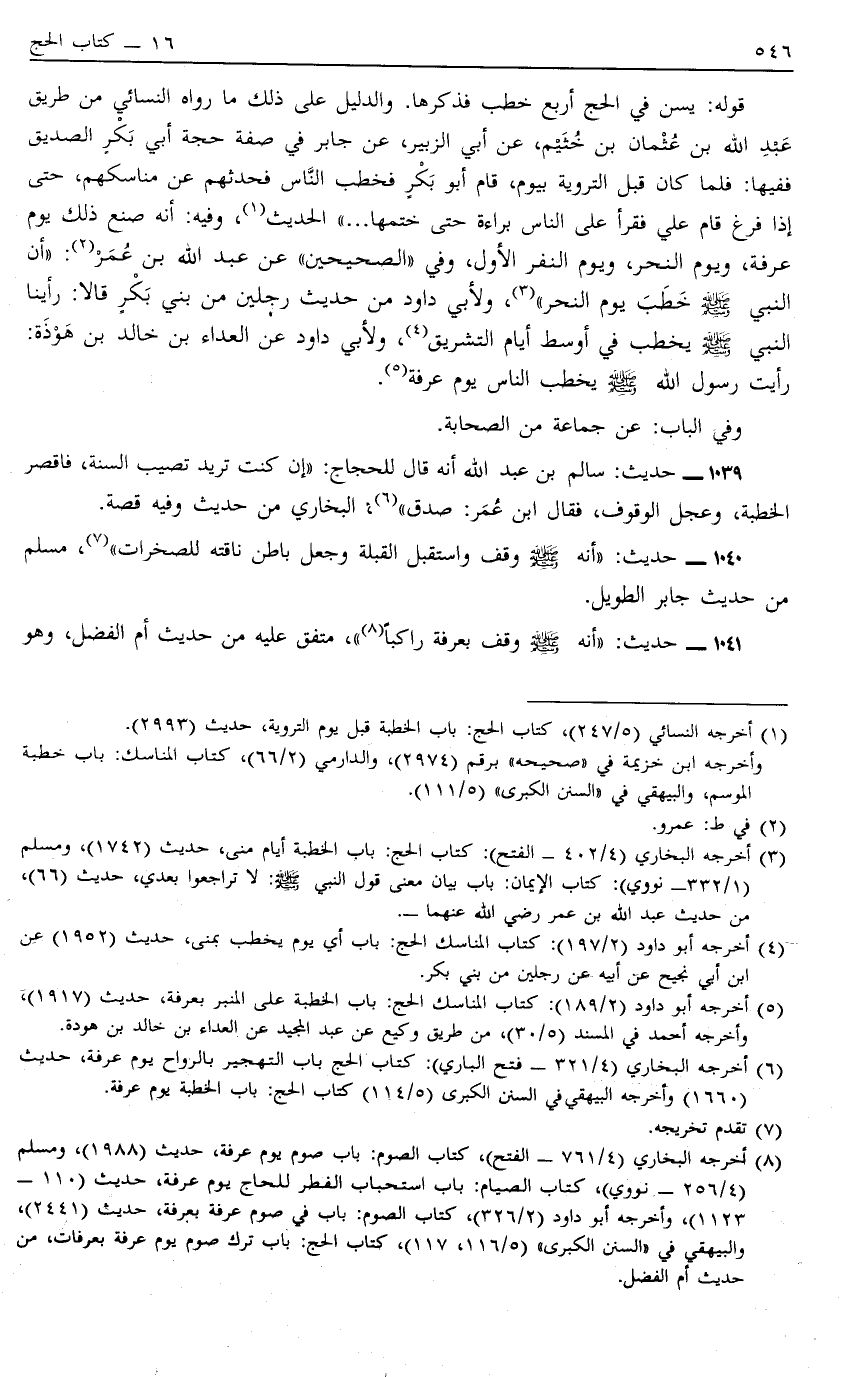 ٥٤٦ ١٦ ــ كتاب الحج
قوله: يسن في الحج أربع خطب فذكرها. والدليل على ذلك ما رواه النسائي من طريق
عَبْدِ الله بن عُثْمان بن خُثَيْم، عن أبي الزبير، عن جابر في صفة حجة أبي بَكْرٍ الصديق
ففيها: فلما كان قبل التروية بيوم، قام أبو بَكْرٍ فخطب النَّاس فحدثهم عن مناسكهم، حتى
إذا فرغ قام علي فقرأ على الناس براءة حتى ختمها...» الحديث(١)، وفيه: أنه صنع ذلك يوم
عرفة، ويوم النحر، ويوم النفر الأول، وفي «الصحيحين» عن عبد الله بن عُمَرْ(٢): «أن
النبي ﷺ خَطَبَ يوم النحر»(٣)، ولأبي داود من حديث رجلين من بني بَكْرٍ قالا: رأينا
النبي ﷺ يخطب في أوسط أيام التشريق(٤)، ولأبي داود عن العداء بن خالد بن هَوْذَة:
رأيت رسول الله ﷺ يخطب الناس يوم عرفة(٥).
وفي الباب: عن جماعة من الصحابة.
١٠٣٩ ــ حديث: سالم بن عبد الله أنه قال للحجاج: «إن كنت تريد تصيب السنة، فاقصر
الخطبة، وعجل الوقوف، فقال ابن عُمَر: صدق»(٦)؛ البخاري من حديث وفيه قصة.
١٠٤٠ ــ حديث: «أنه ﷺ وقف واستقبل القبلة وجعل باطن ناقته للصخرات»(٧)، مسلم
من حديث جابر الطويل.
١٠٤١ ــ حديث: «أنه ﷺ وقف بعرفة راكباً(٨)»، متفق عليه من حديث أم الفضل، وهو
(١) أخرجه النسائي (٢٤٧/٥)، كتاب الحج: باب الخطبة قبل يوم التروية، حديث (٢٩٩٣).
وأخرجه ابن خزيمة في «صحيحه» برقم (٢٩٧٤)، والدارمي (٦٦/٢)، كتاب المناسك: باب خطبة
الموسم، والبيهقي في «السنن الكبرى» (١١١/٥).
(٢) في ط: عمرو.
(٣) أخرجه البخاري (٤٠٢/٤ ــ الفتح): كتاب الحج: باب الخطبة أيام منى، حديث (١٧٤٢)، ومسلم
(٣٣٢/١ــ نووي): كتاب الإيمان: باب بيان معنى قول النبي ﷺ: لا تراجعوا بعدي، حديث (٦٦)،
من حديث عبد الله بن عمر رضي الله عنهما ــ.
(٤) أخرجه أبو داود (١٩٧/٢): كتاب المناسك الحج: باب أي يوم يخطب بمنى، حديث (١٩٥٢) عن
ابن أبي نجيح عن أبيه عن رجلين من بني بكر.
(٥) أخرجه أبو داود (١٨٩/٢): كتاب المناسك الحج: باب الخطبة على المنبر بعرفة، حديث (١٩١٧)،
وأخرجه أحمد في المسند (٣٠/٥)، من طريق وكيع عن عبد المجيد عن العداء بن خالد بن هودة.
(٦) أخرجه البخاري (٣٢١/٤ ــ فتح الباري): كتاب الحج باب التهجير بالرواح يوم عرفة، حديث
(١٦٦٠) وأخرجه البيهقي في السنن الكبرى (١١٤/٥) كتاب الحج: باب الخطبة يوم عرفة.
(٧) تقدم تخريجه.
(٨) أخرجه البخاري (٧٦١/٤ ــ الفتح)، كتاب الصوم: باب صوم يوم عرفة، حديث (١٩٨٨)، ومسلم
(٢٥٦/٤ ــ نووي)، كتاب الصيام: باب استحباب الفطر للحاج يوم عرفة، حديث (١١٠ ــ
١١٢٣)، وأخرجه أبو داود (٣٢٦/٢)، كتاب الصوم: باب في صوم عرفة بعرفة، حديث (٢٤٤١)،
والبيهقي في «السنن الكبرى» (١١٦/٥، ١١٧)، كتاب الحج: باب ترك صوم يوم عرفة بعرفات، من
حديث أم الفضل.